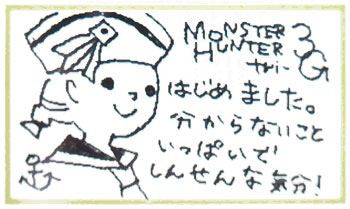 MONSTER
HUNTER 3G
tri-
はじめました。
分からないこと
いっぱいで
しんせんな気分!